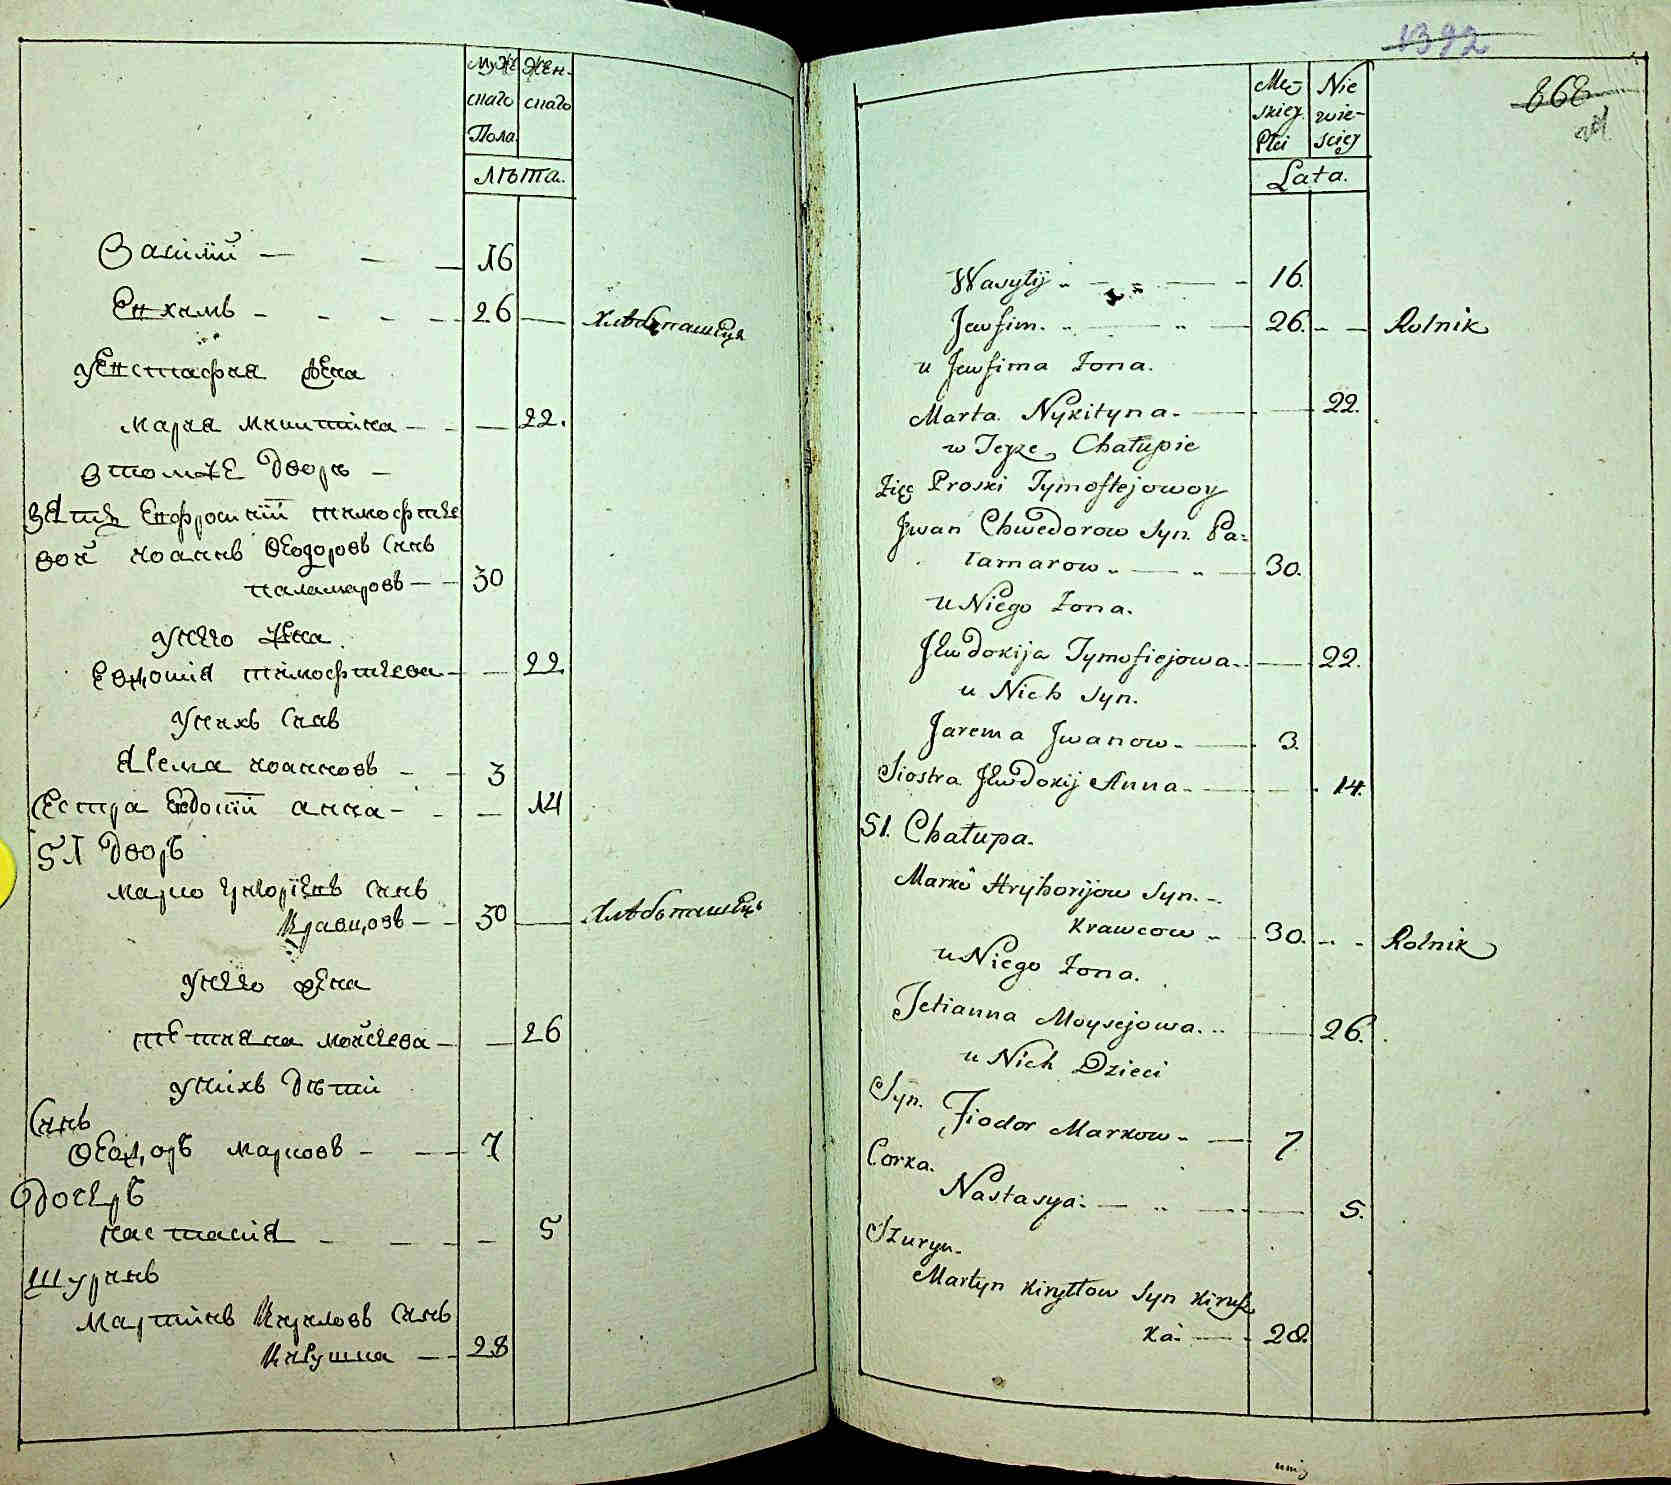 Муже Жен-
скаго скаго
Пола
Лѣта.
Василий — — — 16
Евхимъ - - - - 26 — Хлѣбопашецъ
у Евстафия жена
Марѳа Никитина - - — 22.
Втомже дворѣ —
Зять Евфросинїи тимофѣе
вой иоаннъ Ѳеодоровъ Сынъ
паламаровъ — - 30
унего жена.
Евдокия тимофѣева - — 22
унихъ Сынъ
Ярема иоанновъ - - 3
Сестра Евдокїи анна - - — 14
51 Дворъ
Марко григорїевъ Сынъ
Кравцовъ — - 30 — Хлѣбопашецъ
унего жена
тетияна мойсеева — — 26
унихъ дѣти
Сынъ
Ѳеодоръ марковъ - — 7
Дочерь
настасия - — - - 5
Шуринъ
Мартинъ Кириловъ Сынъ
Кирушка — - 28
1392
868
Mę- Nie
skiey wie-
Płci sciey
Lata.
Wasylij - - — - 16.
Jewfim. - — - — 26. - — Rolnik
u Jewfima Zona.
Marta Nykityna - — — 22.
w Teyze Chałupie
Zięć Proski Tymoftejowoy
Jwan Chwedorow Syn. Pa-
łamarow - — - — 30.
u Niego Zona.
Jewdokija Tymofiejowa - — 22.
u Nich Syn.
Jarema Jwanow - — 3.
Siostra Jewdokij Anna - — - 14.
51. Chałupa.
Marko Hryhorijow Syn. -
Krawcow - - 30. - - Rolnik
u Niego Zona.
Tetianna Moysejowa. - — 26.
u Nich Dzieci
Syn.
Fiodor Markow - — 7
Corka.
Nastasya. — - — — 5.
Szuryn.
Martyn Kiryłłow Syn Kirusz
ka. — - 28.